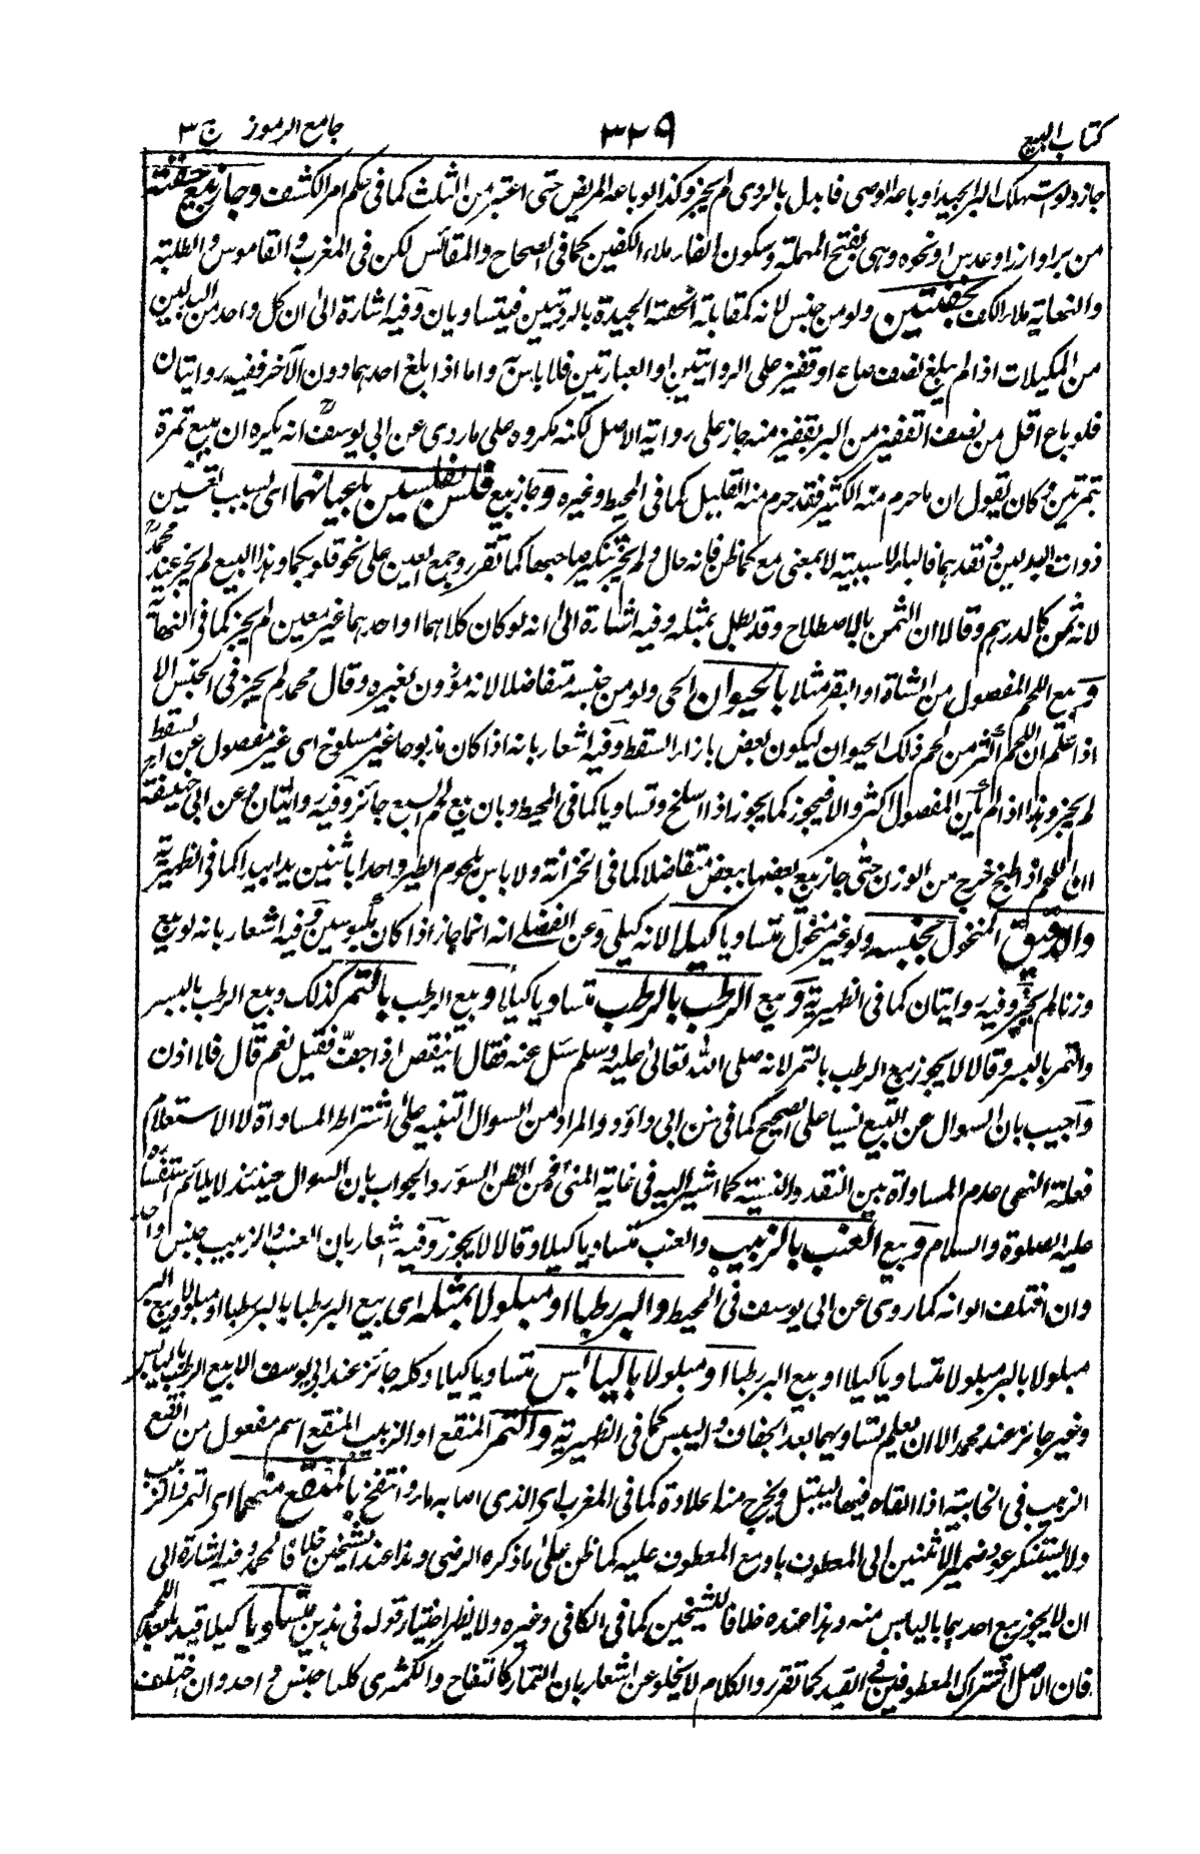 كتاب البيع ٣٢٩ جامع الرموز ج ٣
جاز ولو استهلك البر الجيد او باعه الوصى فابدل بالردى لم يجز وكذا لو باعه المريض حتى اعتبر من الثلث كما فى حكم امر الكشف وجاز بيع حفنة
من بر او ارز او عدس او نحوه وهى بفتح المهملة وسكون الفاء ملاء الكفين كما فى الصحاح والمقائس لكن فى المغرب والقاموس والطلبة
والنهاية ملاء الكف بحفنتين ولو من جنس لانه كمقابلة الحفنة الجيدة بالرديتين فيتساويان وفيه اشارة الى ان كل واحد من البدلين
من المكيلات اذا لم يبلغ نصف صاع او قفيز على الروايتين او العبارتين فلا باس به واما اذا بلغ احدهما دون الآخر ففيه روايتان
فلو باع اقل من نصف القفيز من البر بقفيز منه جاز على رواية الاصل لكنه مكروه على ما روى عن ابى يوسف انه يكره ان يبيع تمرة
بتمرتين وكان يقول ان ما حرم منه الكثير فقد حرم منه القليل كما فى المحيط وغيره وجاز بيع فلس بفلسين باعيانهما اى بسبب تعيين
ذوات البدلين ونقدهما فالباء للسببية لا بمعنى مع كما ظن فانه حال ولم يجز تنكير صاحبها كما تقرر وجمع العين على نحو قلوبكما وهذا البيع لم يجز عند محمد
لانه ثمن كالدرهم وقالا ان الثمن بالاصطلاح وقد بطل بمثله وفيه اشارة الى انه لو كان كلاهما او احدهما غير معين لم يجز كما فى النهاية
وبيع اللحم المفصول من الشاة او البقر مثلا بالحيوان الحى ولو من جنسه متفاضلا لانه موزون بغيره وقال محمد لم يجز فى الجنس الا
اذا علم ان اللحم اكثر من لحم ذلك الحيوان ليكون بعض بازاء السقط وفيه اشعار بانه اذا كان مذبوحا غير مسلوخ اى غير مفصول عن السقط
لم يجز وهذا اذا لم يكن المفصول اكثر والا فيجوز كما يجوز اذا سلخ وتساويا كما فى المحيط وبان بيع لحم السبع جائز وفيه روايتان وعن ابى حنيفة
ان اللحم اذا طبخ خرج من الوزن حتى جاز بيع بعضها ببعض متفاضلا كما فى الخزانة ولا باس بلحوم الطير واحدا باثنين يدا بيد كما فى الظهيرية
والدقيق المنخول بجنسه ولو غير منخول متساويا كيلا لانه كيلى وعن الفضلى انه انما جاز اذا كان مكبوسين وفيه اشعار بانه لو بيع
وزنا لم يجز وفيه روايتان كما فى الظهيرية وبيع الرطب بالرطب متساويا كيلا وبيع الرطب بالتمر كذلك وبيع الرطب بالبسر
والتمر بالبسر وقالا لا يجوز بيع الرطب بالتمر لانه صلى الله تعالى عليه وسلم سئل عنه فقال أينقص اذا جف فقيل نعم قال فلا اذن
واجيب بان السوال عن البيع نسيا على الصحيح كما فى سنن ابى داؤد والمراد من السوال التنبيه على اشتراط المساواة لا الاستعلام
فعلة النهى عدم المساواة بين النقد والنسية كما اشير اليه فى غاية المنى فمن الظن السوء رد الجواب بان السوال حينئذ لا يلائم استفساره
عليه الصلوة والسلام وبيع العنب بالزبيب والعنب متساويا كيلا وقالا لا يجوز وفيه اشعار بان العنب والزبيب جنس واحد
وان اختلف الوانه كما روى عن ابى يوسف فى المحيط والبر رطبا او مبلولا بمثله اى بيع البر رطبا بالبر رطبا او مبلولا وبيع البر
مبلولا بالبر مبلولا متساويا كيلا او بيع البر رطبا او مبلولا باليابس متساويا كيلا وكله جائز عند ابى يوسف الا بيع الرطب باليابس
وغير جائز عند محمد الا ان يعلم تساويهما بعد الجفاف واليبس كما فى الظهيرية والتمر المنقع او الزبيب المنقع اسم مفعول من انقع
الزبيب فى الخابية اذا القاه فيها ليبتل ويخرج منه الحلاوة كما فى المغرب اى الذى اصابه ماء وانتفخ بالمنقع منهما اى التمر والزبيب
ولا يستنكر عود ضمير الاثنين الى المعطوف باو مع المعطوف عليه كما ظن على ما ذكره الرضى وهذا عند الشيخين خلافا لمحمد وفيه اشارة الى
ان لا يجوز بيع احدهما باليابس منه وهذا عنده خلافا للشيخين كما فى الكافى وغيره ولا يظهر اختيار قوله فى هذين متساويا كيلا قيد لبيع اللحم
فان الاصل اشتراك المعطوفين فى القيد كما تقرر والكلام لا يخلو عن اشعار بان الثمار كالتفاح والكمثرى كلها جنس واحد وان اختلف